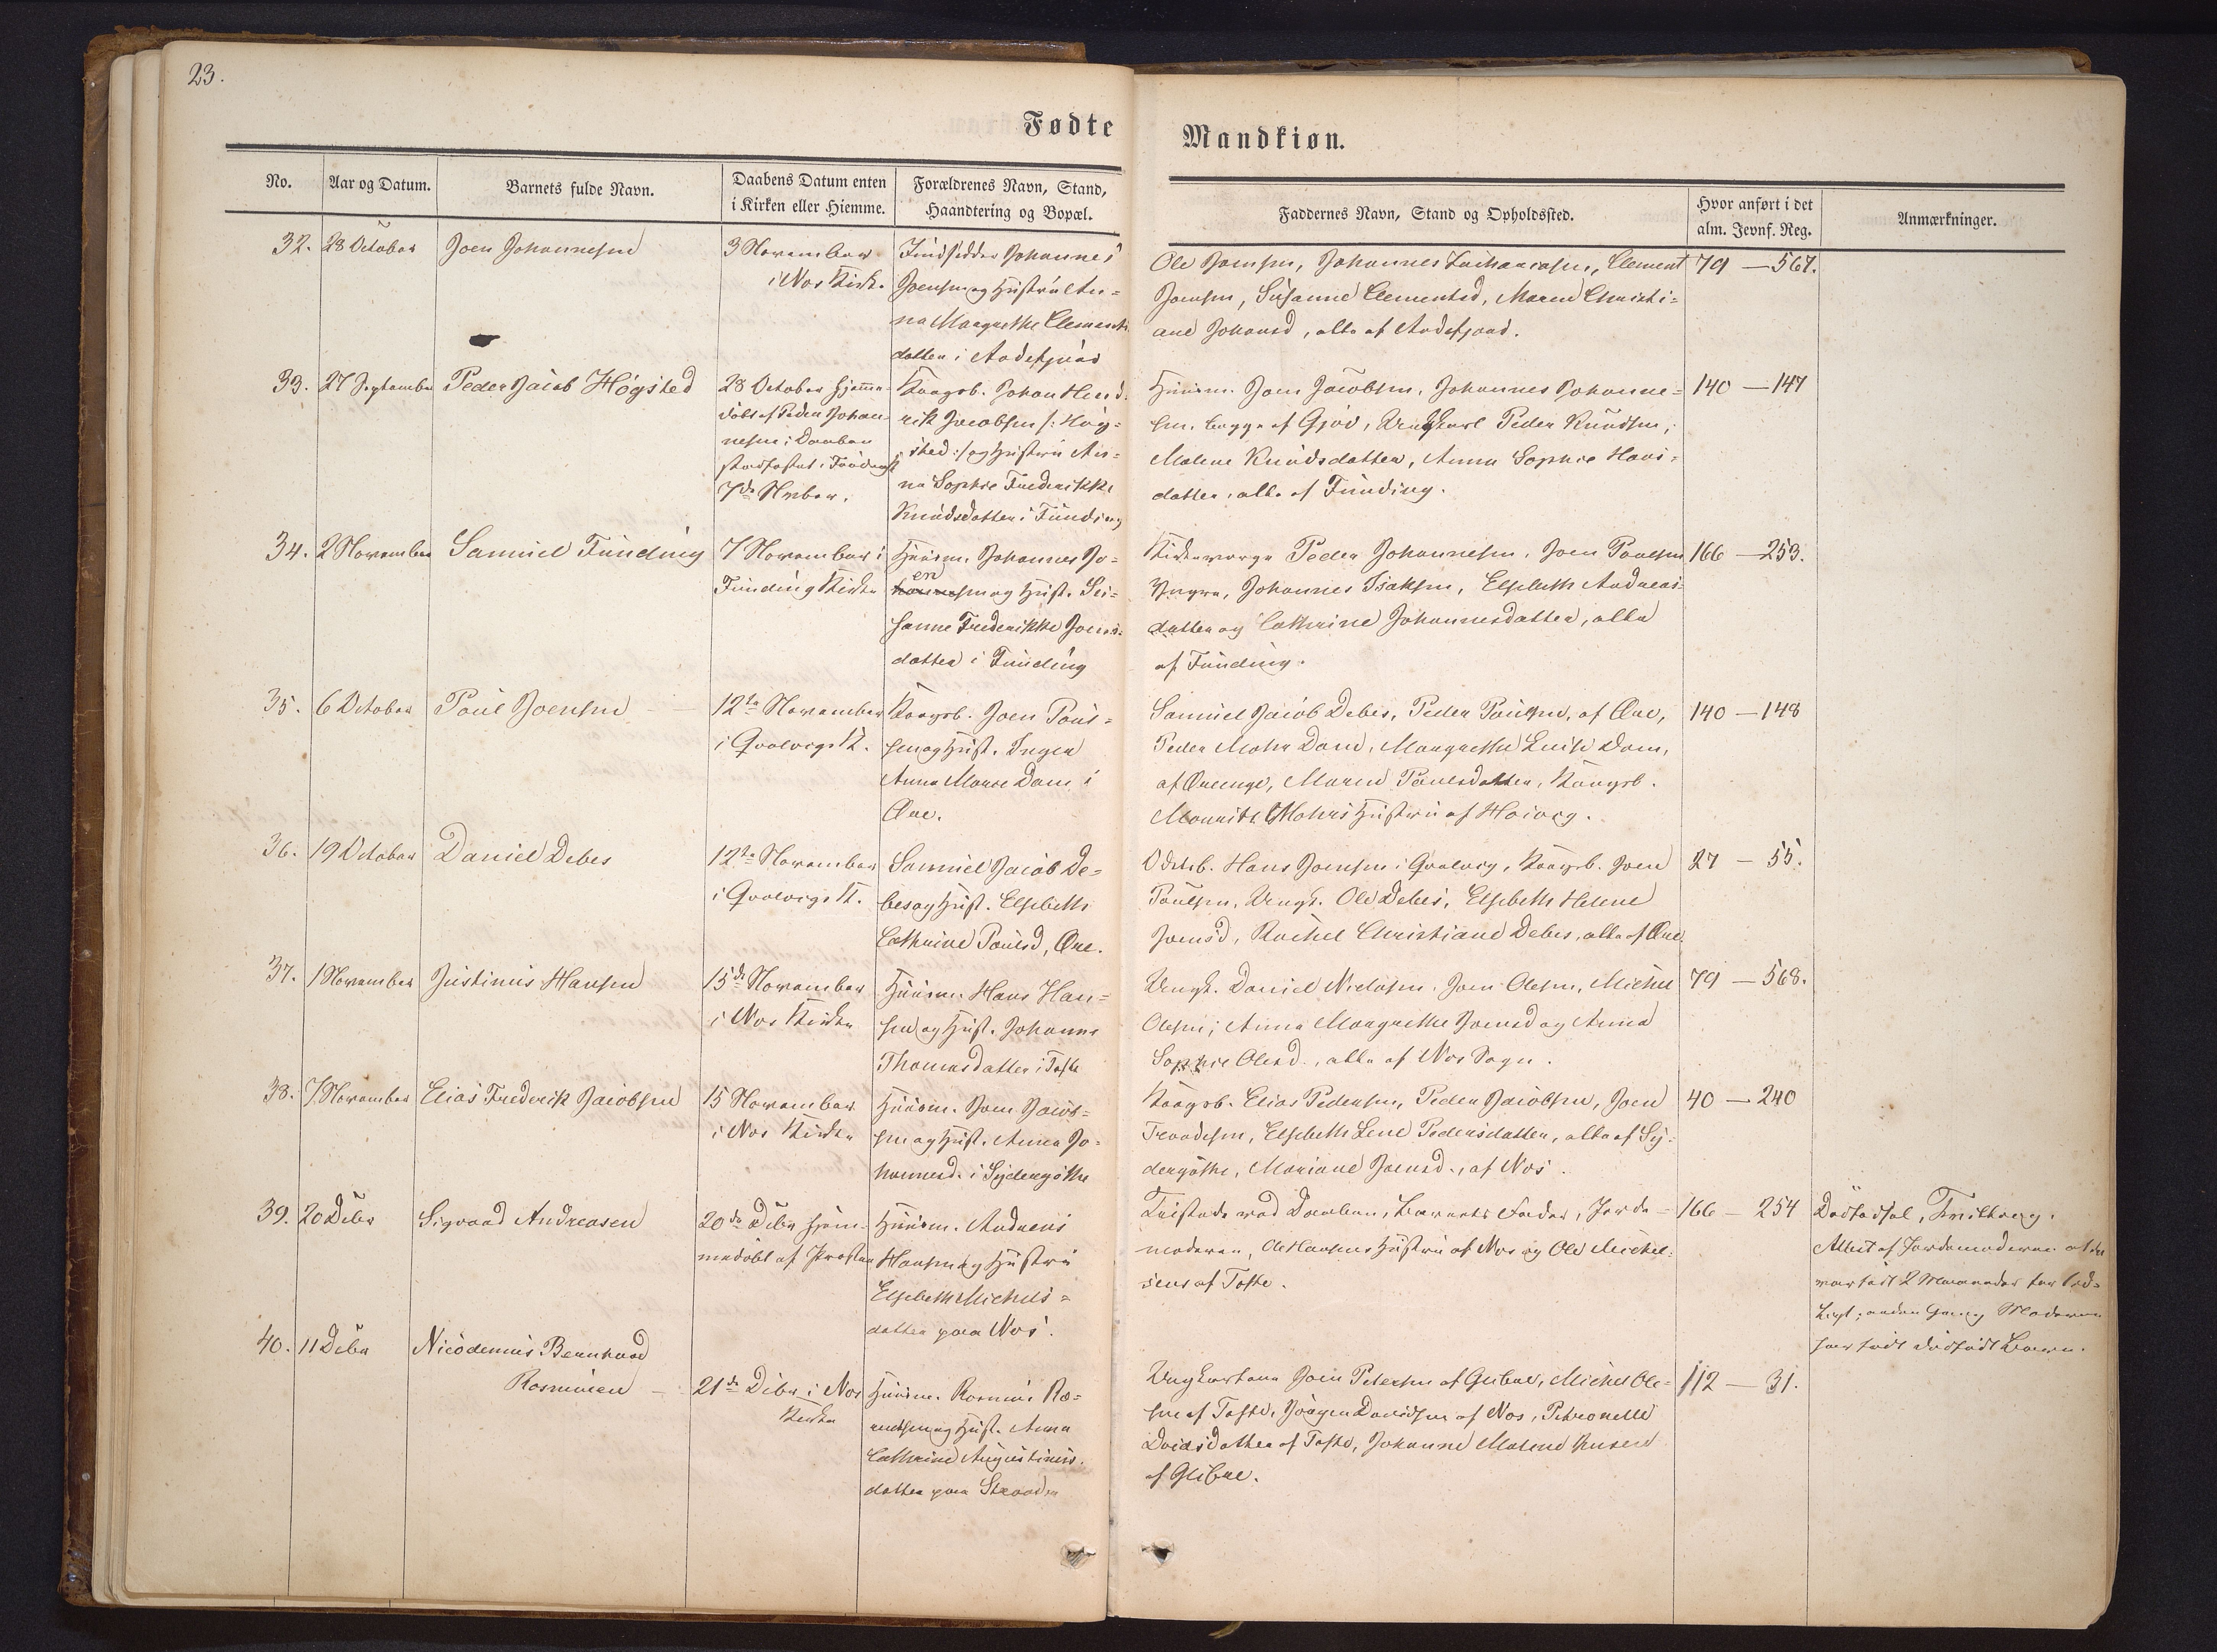 23.
Fødte
Mandkiøn.
No.
Aar og Datum.
Barnets fulde Navn.
Daabens Datum enten
i Kirken eller Hiemme.
Forældrenes Navn, Stand,
Haandtering og Bopæl.
Faddernes Navn, Stand og Opholdssted.
Hvor anført i det
alm. Jevnf. Reg.
Anmærkninger.
32.
28 October
Joen Johannesen
3 November
i Nes Kirke
Indsidder Johannes
Joensen og Hustru An=
na Margrethe Clements
datter i Andefjord
Ole Joensen, Johannes Zachariasen, Clement
Joensen, Susanne Clementsd, Maren Christi=
ane Johansd, alle af Andefjord.
79 — 567.
33.
27 September
Peder Jacob Høgsted
28 October hjemme
døbt af Peder Johan
nesen; Daaben
stadfæstet i Funding K
7de Nvber.
Kongsb. Johan Hend
rik Jacobsen /: Høg=
sted :/ og Hustru An=
na Sophie Frederikke
Knudsdatter i Funding
Huusm. Joen Jacobsen, Johannes Johanne=
sen, begge af Gjov, Ungkarl Peder Knudsen,
Malene Knudsdatter, Anna Sophie Hans=
datter, alle af Funding.
140 — 147
34.
2 November
Samuel Funding
7 November i
Funding Kirke
Huusm. Johannes Jo=
en
hannesen og Hust. Su=
sanne Frederikke Joens=
datter i Funding
Kirkeværge Peder Johannesen, Joen Poulsen
Yngre, Johannes Isaksen, Elsebeth Andreas=
datter og Cathrine Johannesdatter, alle
af Funding.
166 — 253.
35.
6 October
Poul Joensen
12te November
i Qvalvigs K.
Kongsb. Joen Pouls=
sen og Hust. Inger
Anna Marie Dam i
Øre.
Samuel Jacob Debes, Peder Poulsen, af Øre,
Peder Mohr Dam, Margrethe Luise Dam,
af Ørenge, Maren Poulsdatter, Kongsb.
Mouritz Mohrs Hustru af Hoivig.
140 — 148
36.
19 October
Daniel Debes
12te November
i Qvalvigs K.
Samuel Jacob De=
bes og Hust. Elsebeth
Cathrine Poulsd, Øre.
Odelsb. Hans Joensen i Qvalvig, Kongsb. Joen
Poulsen, Ungk. Ole Debes, Elsebeth Helene
Joensd, Rachel Christiane Debes, alle af Øre.
27 — 55.
37.
1 November
Justinus Hansen
15de November
i Nes Kirke
Huusm. Hans Han=
sen og Hust. Johanne
Thomasdatter i Tofte
Ungk. Daniel Nielasen, Joen Olesen, Michel
Olesen; Anna Margrethe Joensd og Anna
Sophie Olesd., alle af Nes Sogn.
79 — 568.
38.
7 November
Elias Frederik Jacobsen
15 November
i Nes Kirke
Huusm. Joen Jacob=
sen og Hust. Anna Jo=
hannesd. i Sydergøthe
Kongsb. Elias Pedersen, Peder Jacobsen, Joen
Trondesen, Elsebeth Lene Pedersdatter, alle af Sy=
dergøthe, Mariane Joensd., af Nes.
40 — 240
39.
20 Dcbr
Sigvard Andreasen
20de Dcbr hjem=
medøbt af Præsten
Huusm. Andreas
Hansen og Hustru
Elsebeth Michels=
datter paa Nes.
Tilstede ved Daaben, Barnets Fader, Jorde=
moderen, Ole Hansens Hustru af Nes og Ole Michel=
sens af Tofte.
166 — 254
Attest af Jordemoderen at det
var født 2 Maaneder for tid=
ligt; anden Gang Moderen
har født dødfødt Barn.
40.
11 Dcbr
Nicodemus Bernhard
Rasmusen
21de Dcbr i Nes
Kirke
Huusm. Rasmus Ras=
musen og Hust. Anna
Cathrine Augustinus=
datter paa Strande
Ungkarlene Joen Petersen af Glibre, Michel Ole=
sen af Tofte, Jørgen Davidsen af Nes, Petronelle
Davidsdatter af Tofte, Johanne Malene
af Glibre.
112 — 31.